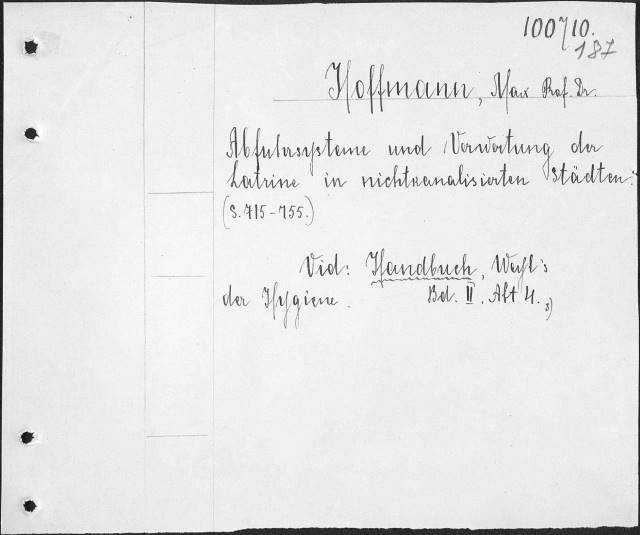 100710.
187
Hoffmann, Max Prof. Dr.
Abfuhrsysteme und Verwertung der
Latrine in nichtkanalisierten Städten.
(S. 715-755.)
Vid: Handbuch, Weyl's
der Hygiene. Bd. II. Abt 4.